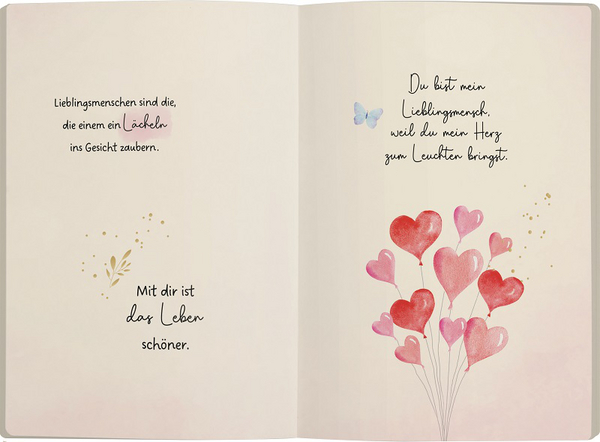 Lieblingsmenschen sind die,
die einem ein Lächeln
ins Gesicht zaubern.
Mit dir ist
das Leben
schöner.
Du bist mein
Lieblingsmensch,
weil du mein Herz
zum Leuchten bringst.